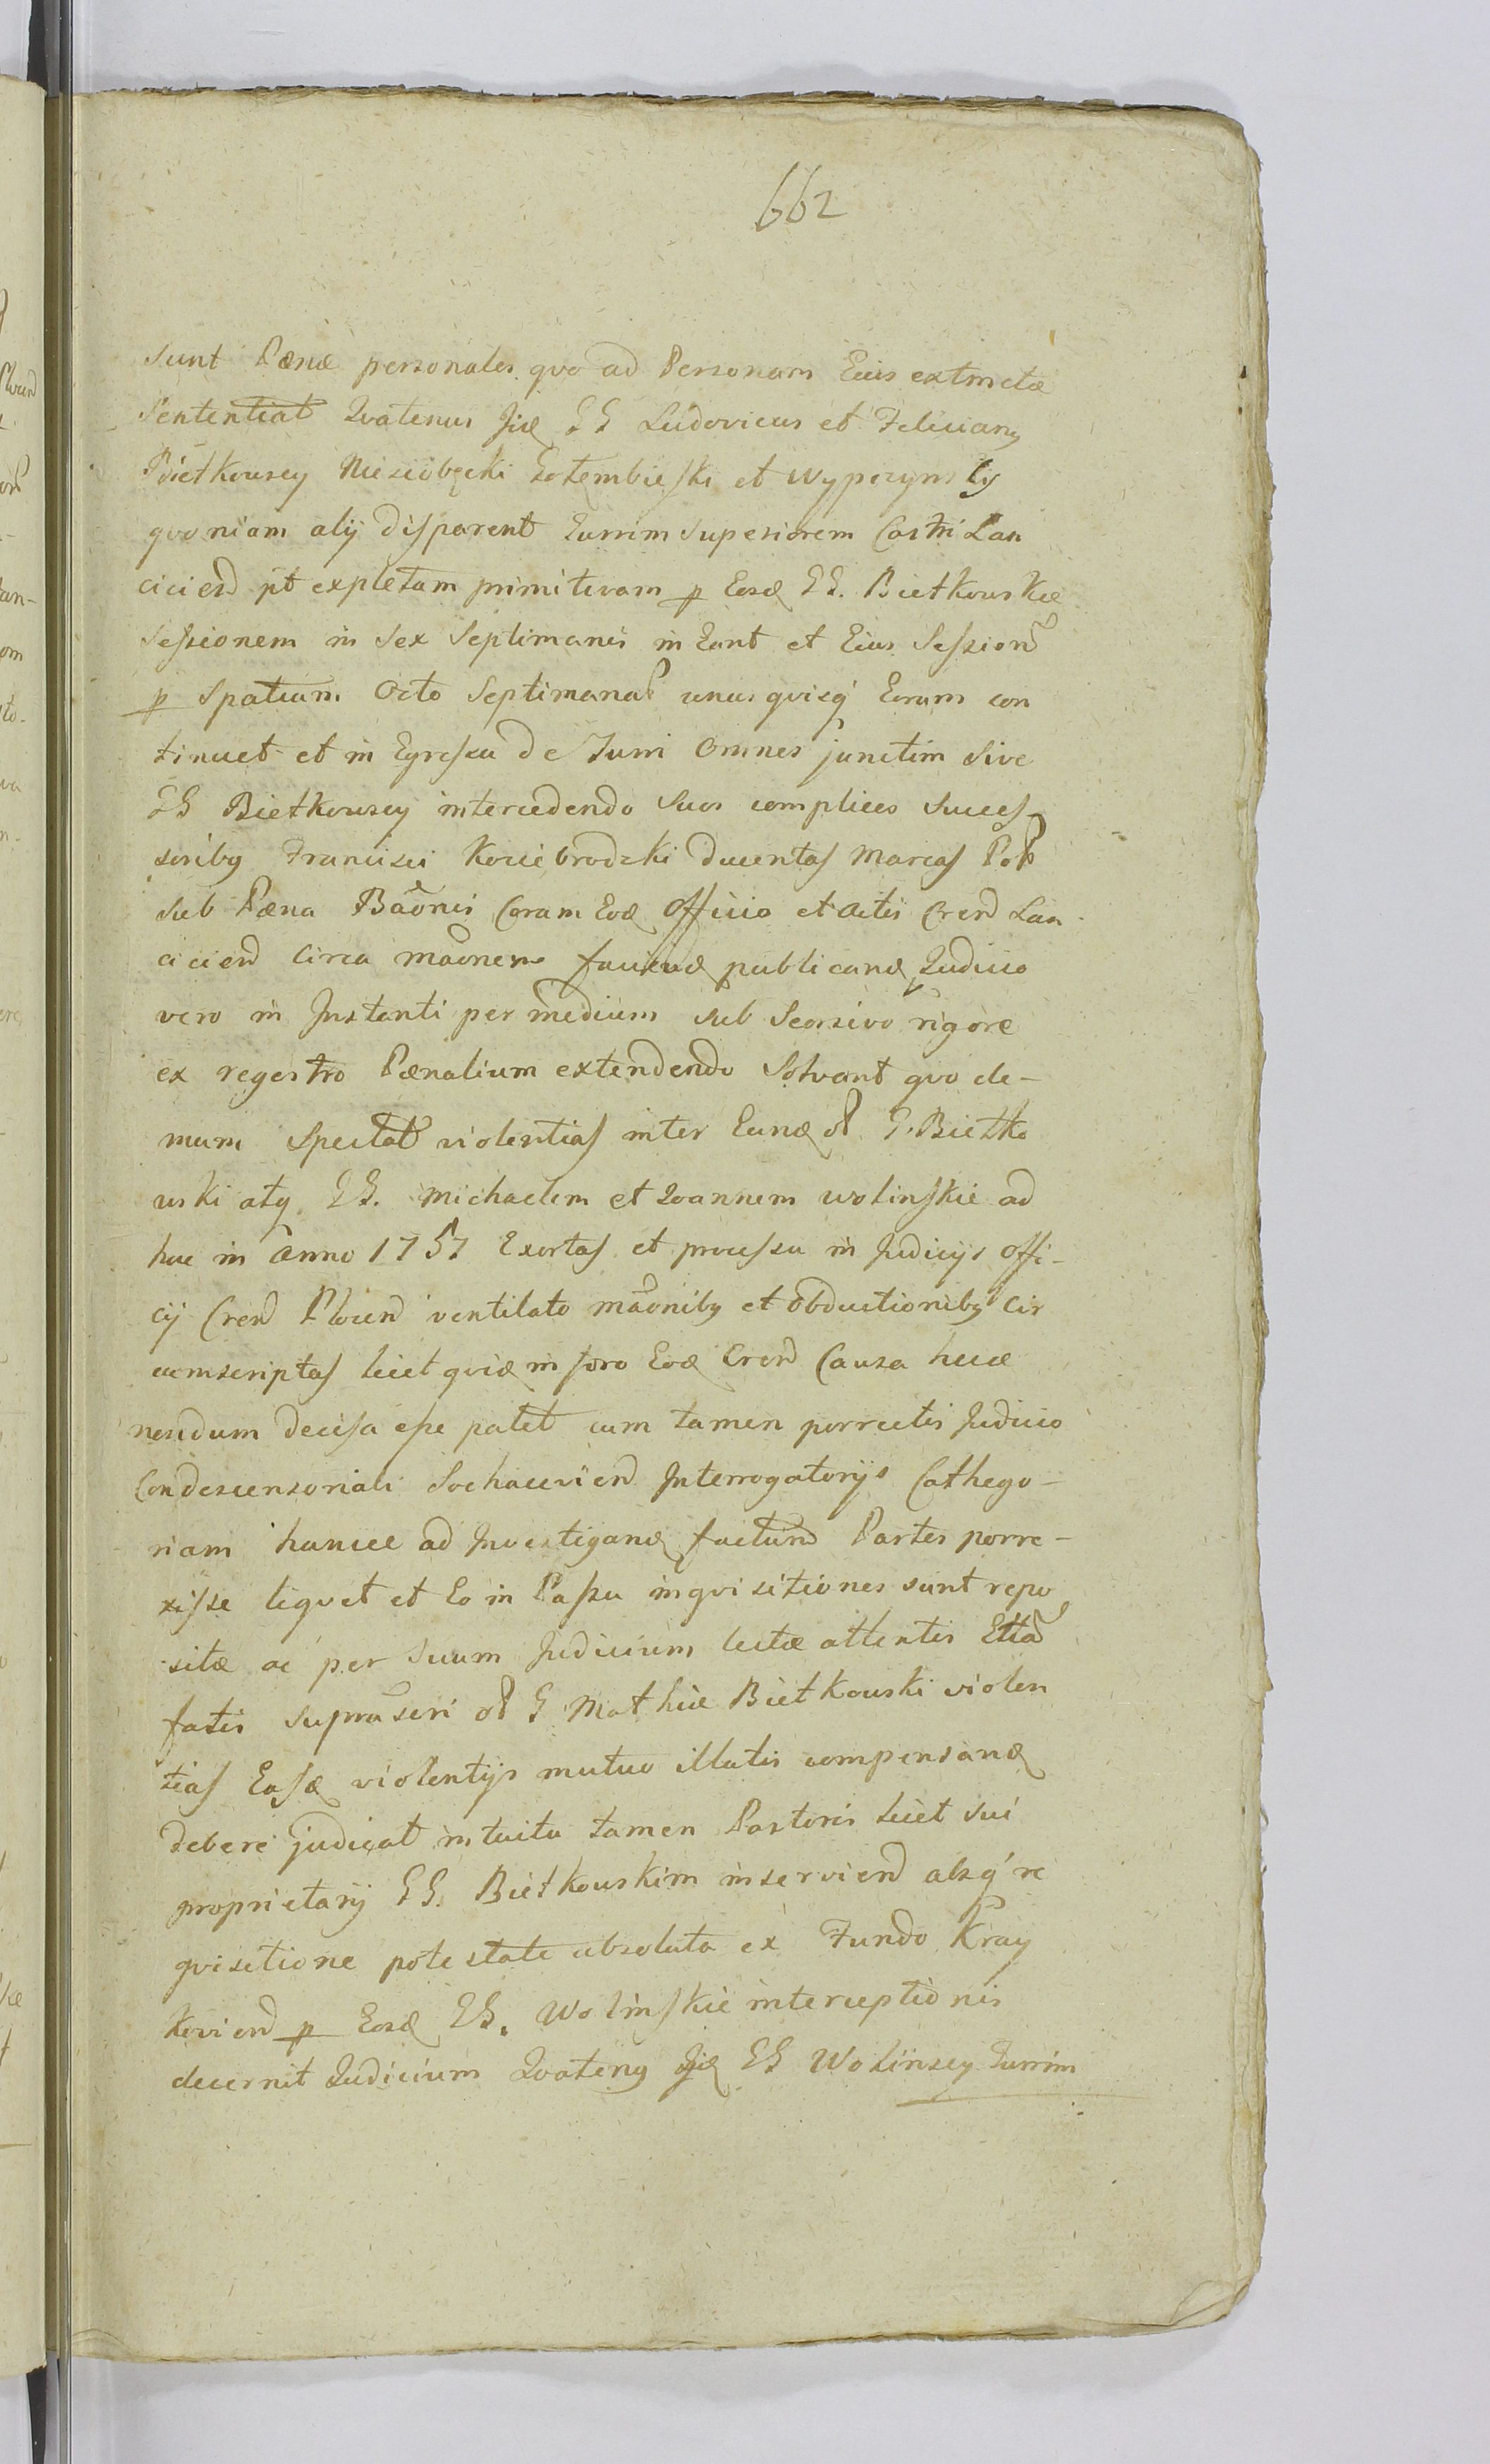 662
sunt Pænæ personales quo ad Personam Eius extinctæ
Sententiat Quatenus Jid GG Ludovicus et Felicianq
Bietkowscy Niesiobęcki Gołembieski et Wyperynscy
quoniam alij disparent Turrim Superiorem Castri Lan
cicien pt expletam primitivam p Eosd GG. Bietkowskie
Sessionem in Sex Septimanis in Eant et Eius Session
p Spatium Octo Septimanar unusquisq Eorum con
tinuet et in Egressu de Turri Omnes junctim sive
GG Bietkowscy intercedendo Suos complices Succes-
soribq Francisci Kociebrodzki Ducentas Marcas Pol
sub Pæna Baonis Coram Eod Officio et Actis Cren Lan-
cicien Circa maonem faciend publicand Judicio
vero in Instanti per medium sub Seorsivo rigore
ex regestro Pænalium extendendo Solvant quo de-
mum Spectat violentias inter Eund ol G. Bietko
wski atq GG. Michaelem et Joannem Wolinskie ad
huc in Anno 1757 Exortas et processu in Judicijs Offi-
cij Cren Plocen ventilato maonibq et obductionibq Cir
cumscriptas licet quid in foro Eod Cren Causa hæce
nondum decisa esse patet cum tamen porrectis Judicio
Condescensoriali Sochacevien Interrogatorijs Cathego-
riam hancce ad Investigand factum Partes porre-
xisse liquet et Eo in Passu inquisitiones sunt repo
sitæ ac per Suum Judicium lectæ attentis
fatis supra seri ol G Mathiæ Bietkowski violen
tias Easd violentijs mutuo illatis compensand
debere judicat intuitu tamen Pastoris licet sui
proprietarij GG. Bietkowskim inservien absq re
quisitione potestate absoluta ex Fundo Kray
kovien p Eosd GG. Wolinskie interceptionis
decernit Judicium Quatenq Jid GG Wolinscy Turrim